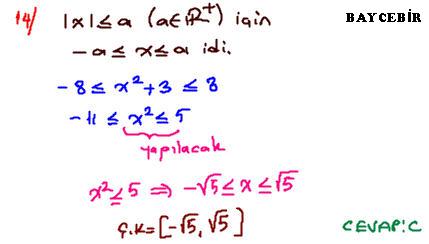 14/ |x| ≤ a (a∈ℝ⁺) için
BAYCEBİR
-a ≤ x ≤ a idi.
-8 ≤ x²+3 ≤ 8
-11 ≤ x² ≤ 5
yapılacak
x² ≤ 5 ⇒ -√5 ≤ x ≤ √5
Ç.K = [-√5, √5]
CEVAP: C